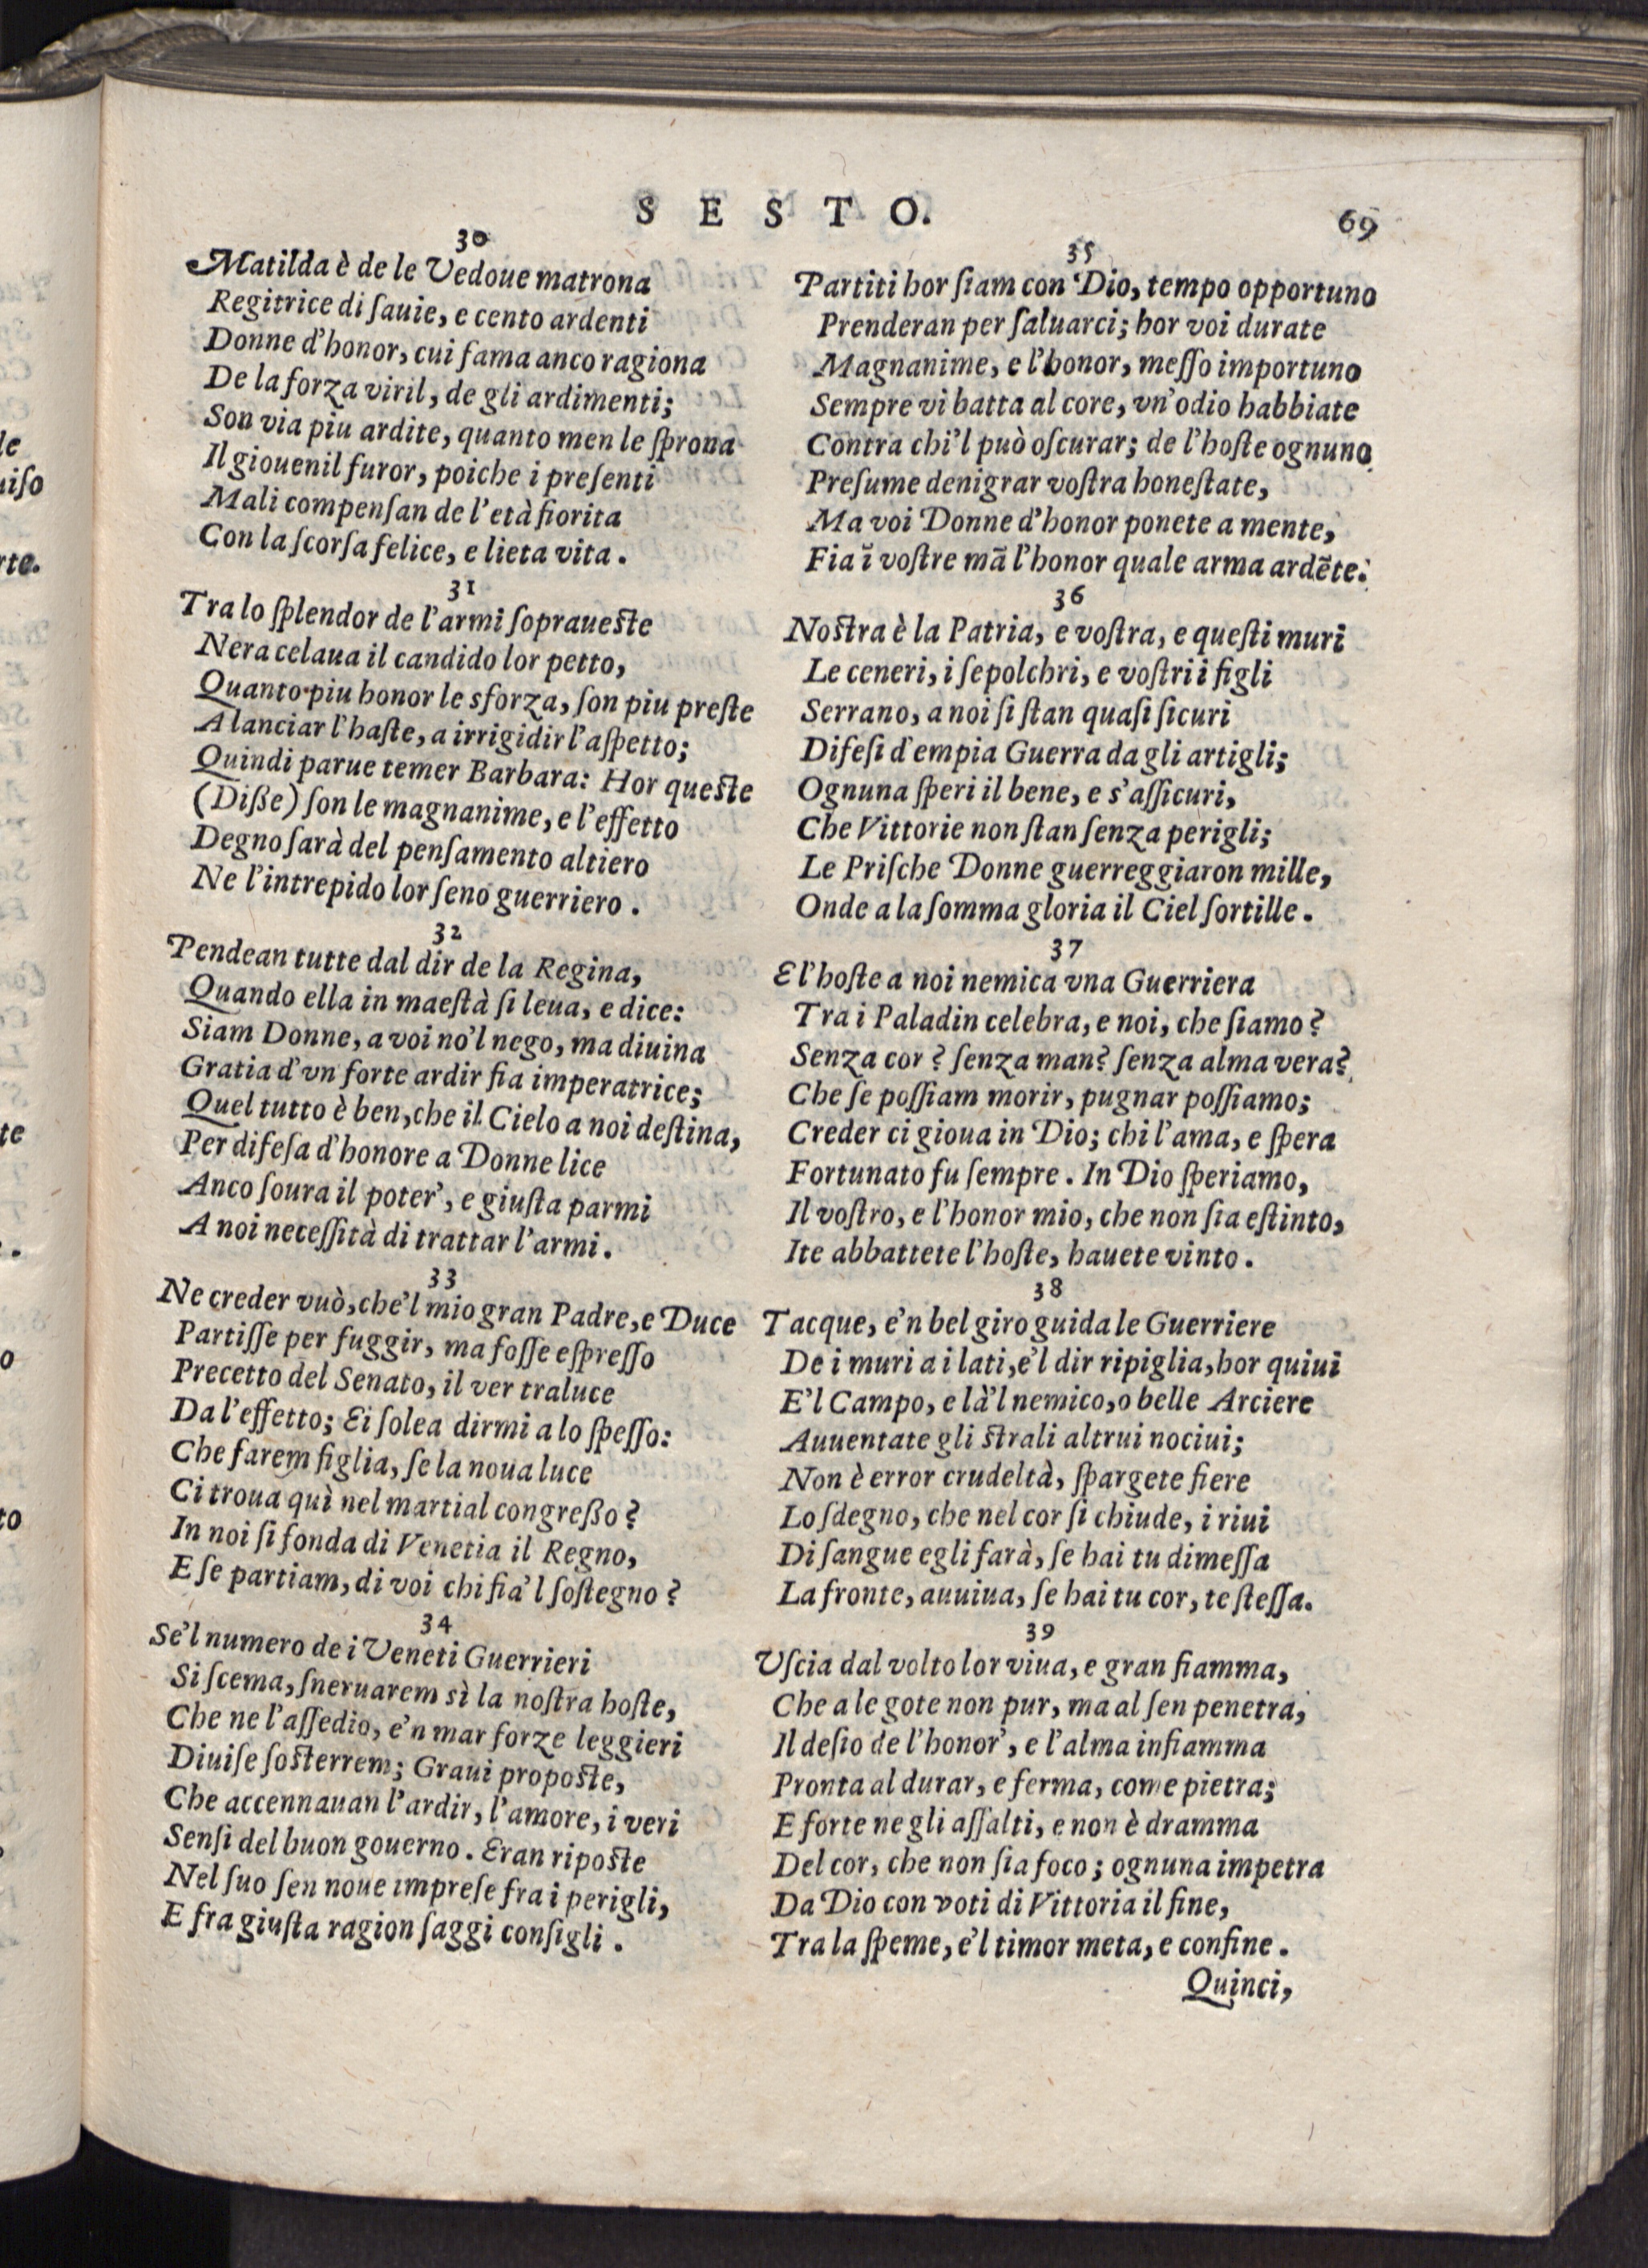 SESTO.
69
30
Matilda è de le Vedoue matrona
Regitrice di ſauie, e cento ardenti
Donne d'honor, cui fama anco ragiona
De la forza viril, de gli ardimenti;
Son via piu ardite, quanto men le ſprona
Il giouenil furor, poiche i preſenti
Mali compenſan de l'età fiorita
Con la ſcorſa felice, e lieta vita.
31
Tra lo ſplendor de l'armi ſopraueſte
Nera celaua il candido lor petto,
Quanto piu honor le sforza, ſon piu preſte
A lanciar l'haſte, a irrigidir l'aſpetto;
Quindi parue temer Barbara: Hor queſte
(Diße) ſon le magnanime, e l'effetto
Degno ſarà del penſamento altiero
Ne l'intrepido lor ſeno guerriero.
32
Pendean tutte dal dir de la Regina,
Quando ella in maeſtà ſi leua, e dice:
Siam Donne, a voi no'l nego, ma diuina
Gratia d'vn forte ardir fia imperatrice;
Quel tutto è ben, che il Cielo a noi deſtina,
Per difeſa d'honore a Donne lice
Anco ſoura il poter', e giuſta parmi
A noi neceſſità di trattar l'armi.
33
Ne creder vuò, che'l mio gran Padre, e Duce
Partiſſe per fuggir, ma foſſe eſpreſſo
Precetto del Senato, il ver traluce
Da l'effetto; Ei ſolea dirmi a lo ſpeſſo:
Che farem figlia, ſe la noua luce
Ci troua quì nel martial congreßo?
In noi ſi fonda di Venetia il Regno,
E ſe partiam, di voi chi fia'l ſoſtegno?
34
Se'l numero de i Veneti Guerrieri
Si ſcema, ſneruarem sì la noſtra hoſte,
Che ne l'aſſedio, e'n mar forze leggieri
Diuiſe ſoſterrem; Graui propoſte,
Che accennauan l'ardir, l'amore, i veri
Senſi del buon gouerno. Eran ripoſte
Nel ſuo ſen noue impreſe fra i perigli,
E fra giuſta ragion ſaggi conſigli.
35
Partiti hor ſiam con Dio, tempo opportuno
Prenderan per ſaluarci; hor voi durate
Magnanime, e l'honor, meſſo importuno
Sempre vi batta al core, vn'odio habbiate
Contra chi'l può oſcurar; de l'hoſte ognuno
Preſume denigrar voſtra honeſtate,
Ma voi Donne d'honor ponete a mente,
Fia ĩ voſtre mã l'honor quale arma ardẽte.
36
Noſtra è la Patria, e voſtra, e queſti muri
Le ceneri, i ſepolchri, e voſtri i figli
Serrano, a noi ſi ſtan quaſi ſicuri
Difeſi d'empia Guerra da gli artigli;
Ognuna ſperi il bene, e s'aſſicuri,
Che Vittorie non ſtan ſenza perigli;
Le Priſche Donne guerreggiaron mille,
Onde a la ſomma gloria il Ciel ſortille.
37
E l'hoſte a noi nemica vna Guerriera
Tra i Paladin celebra, e noi, che ſiamo?
Senza cor? ſenza man? ſenza alma vera?
Che ſe poſſiam morir, pugnar poſſiamo;
Creder ci gioua in Dio; chi l'ama, e ſpera
Fortunato fu ſempre. In Dio ſperiamo,
Il voſtro, e l'honor mio, che non ſia eſtinto,
Ite abbattete l'hoſte, hauete vinto.
38
Tacque, e'n bel giro guida le Guerriere
De i muri a i lati, e'l dir ripiglia, hor quiui
E'l Campo, e là'l nemico, o belle Arciere
Auuentate gli ſtrali altrui nociui;
Non è error crudeltà, ſpargete fiere
Lo ſdegno, che nel cor ſi chiude, i riui
Di ſangue egli farà, ſe hai tu dimeſſa
La fronte, auuiua, ſe hai tu cor, te ſteſſa.
39
Vſcia dal volto lor viua, e gran fiamma,
Che a le gote non pur, ma al ſen penetra,
Il deſio de l'honor', e l'alma infiamma
Pronta al durar, e ferma, come pietra;
E forte ne gli aſſalti, e non è dramma
Del cor, che non ſia foco; ognuna impetra
Da Dio con voti di Vittoria il fine,
Tra la ſpeme, e'l timor meta, e confine.
Quinci,